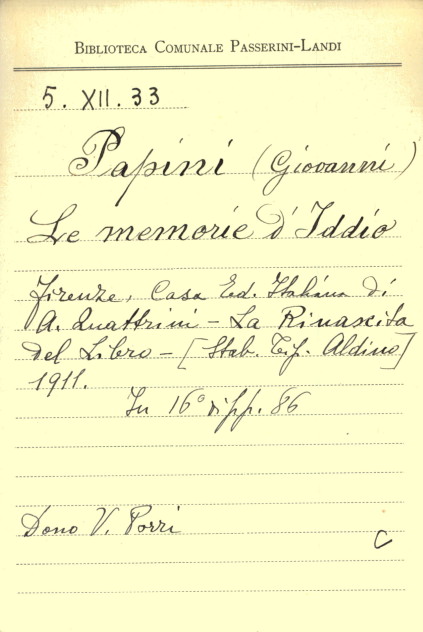 BIBLIOTECA COMUNALE PASSERINI-LANDI
5. XII. 33
Papini (Giovanni)
Le memorie d'Iddio
Firenze, Casa Ed. Italiana di
A. Quattrini - La Rinascita
del Libro - [Stab. Tip. Aldino]
1911.
In 16° di pp. 86
Dono V. Porri
C